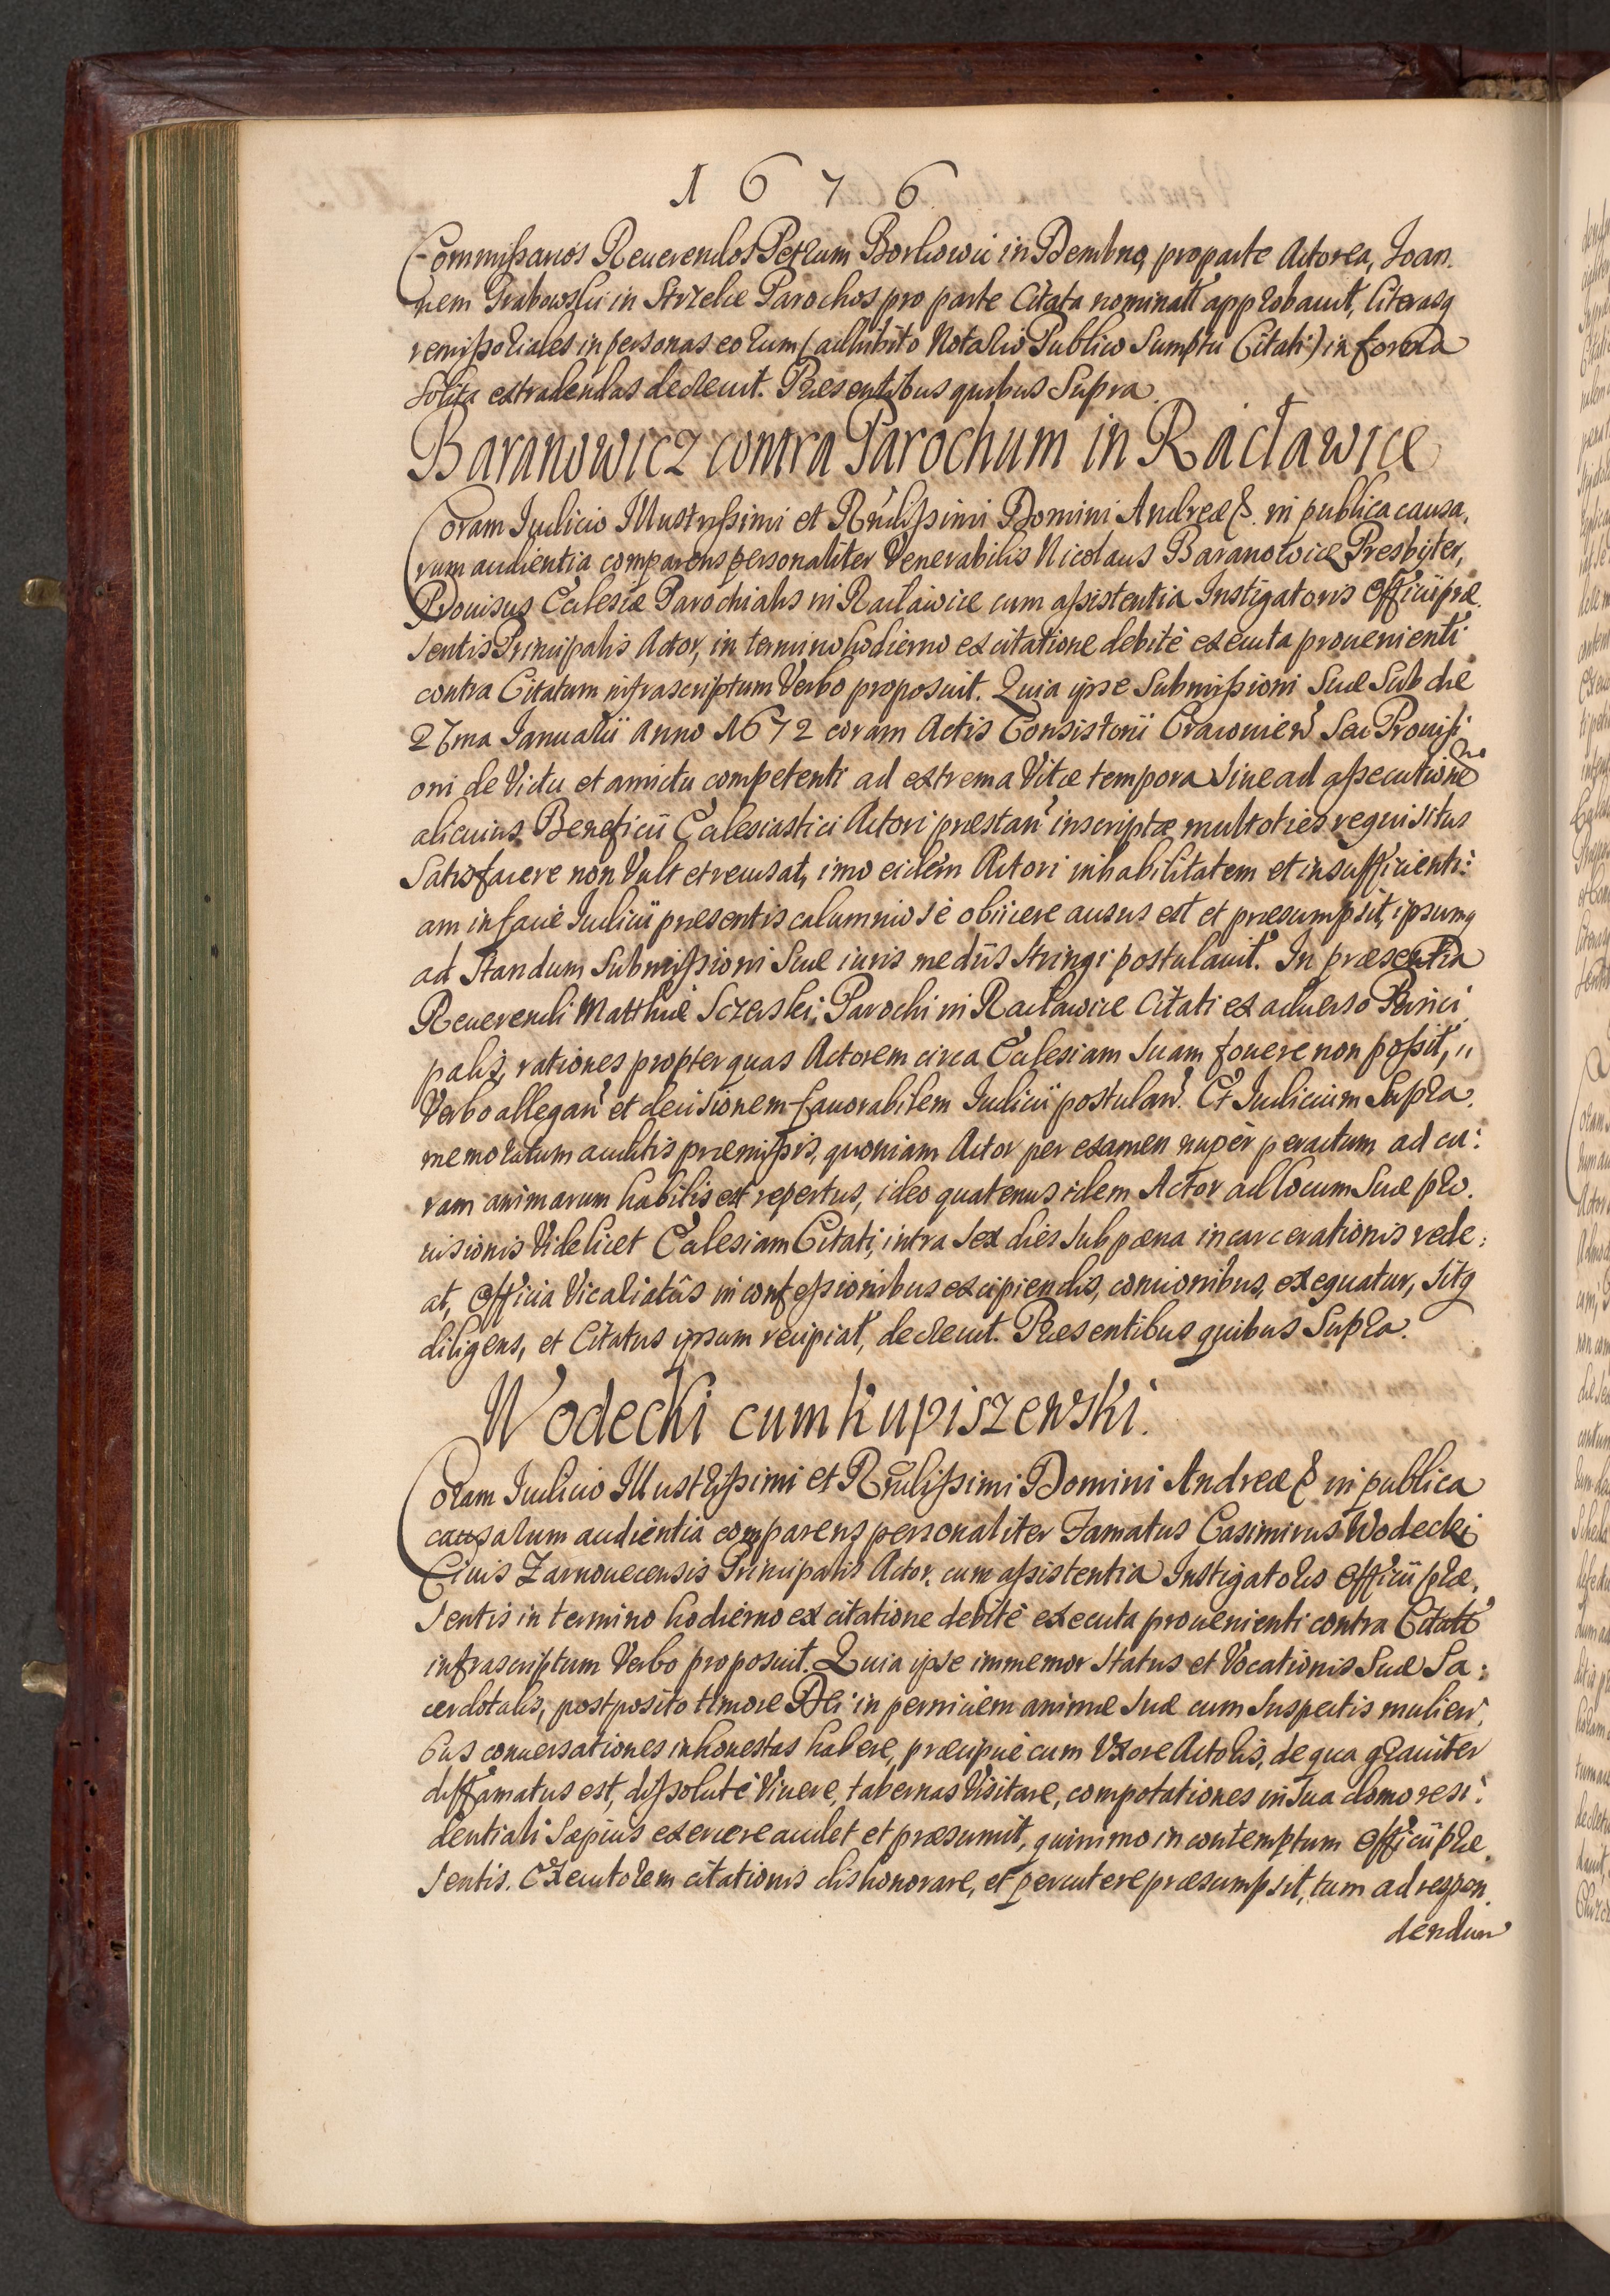 1676
Commissarios Reuerendos Petrum Borkowic in Dembno, pro parte Actorea, Joan.
nem Grabowski in Strzelce Parochos pro parte Citata nominatt approbauit, literasq
remissoriales in personas eorum (adhibito Notario Publico Sumptu Citati) in forma
solita extradendas decreuit. Præsentibus quibus Supra.
Baranowicz contra Parochum in Racławice
Coram Judicio Illustrissimi et Rndissimi Domini Andreæ &. in publica causa,
rum audientia comparens personaliter Venerabilis Nicolaus Baranowicz Presbyter,
Prouisus Ecclesiæ Parochialis in Racławice cum assistentia Instigatoris Officii præ.
sentis Principalis Actor, in termino hodierno ex citatione debitè executa prouenienti
contra Citatum infrascriptum Verbo proposuit. Quia ipse Submissioni Suæ Sub die
27ma Januarii Anno 1672 coram Actis Consistorii Cracouien Seu Prouisi
oni de Victu et amictu competenti ad extrema Vitæ tempora Siue ad assecutione
alicuius Beneficii Ecclesiastici Actori præstan inscriptæ multoties requisitus
Satisfacere non Vult et recusat, imo eidem Actori inhabilitatem et insufficienti:
am in facie Judicii præsentis calumniosè obiicere ausus est et præsumpsit, ipsumq
ad Standum Submissioni Suæ iuris mediis Stringi postulauit. In præsentia
Reuerendi Matthiæ Sczerski: Parochi in Racławice Citati ex aduerso Princi
palis, rationes propter quas Actorem circa Ecclesiam Suam fouere non possit, "
Verbo allegan et decisionem fauorabilem Judicii postulan. Et Judicium Supra.
memoratum auditis præmissis, quoniam Actor per examen nupèr peractum ad cu:
ram animarum habilis est repertus, ideo quatenus idem Actor ad locum Suæ pro.
uisionis Videlicet Ecclesiam Citati, intra Sex dies Sub pæna incarcerationis rede:
at, Officia Vicariatûs in confessionibus excipiendis, concionibus, exequatur, Sitq
diligens, et Citatus ipsum recipiat, decreuit. Præsentibus quibus Supra.
Wodecki cum Kupiszewski.
Coram Judicio Illustrissimi et Rndissimi Domini Andreæ & in publica
causarum audientia comparens personaliter Famatus Casimirus Wodecki
Ciuis Zarnouecensis Principalis Actor, cum assistentia Instigatoris Officii præ,
sentis in termino hodierno ex citatione debitè executa prouenienti contra Citatu
infrascriptum Verbo proposuit. Quia ipse immemor Status et Vocationis Suæ Sa:
cerdotalis, postposito timore Dei in perniciem animæ Suæ cum Suspectis mulieri,
bus conuersationes inhonestas habere, præcipuè cum Vxore Actoris, de qua grauiter
diffamatus est, dissolutè Viuere, tabernas Visitare, compotationes in Sua domo resi:
dentiali Sæpius exercere audet et præsumit, quinimo in contemptum Officii præ.
sentis. Executorem citationis dishonorare, et percutere præsumpsit, tum ad respon
dendum